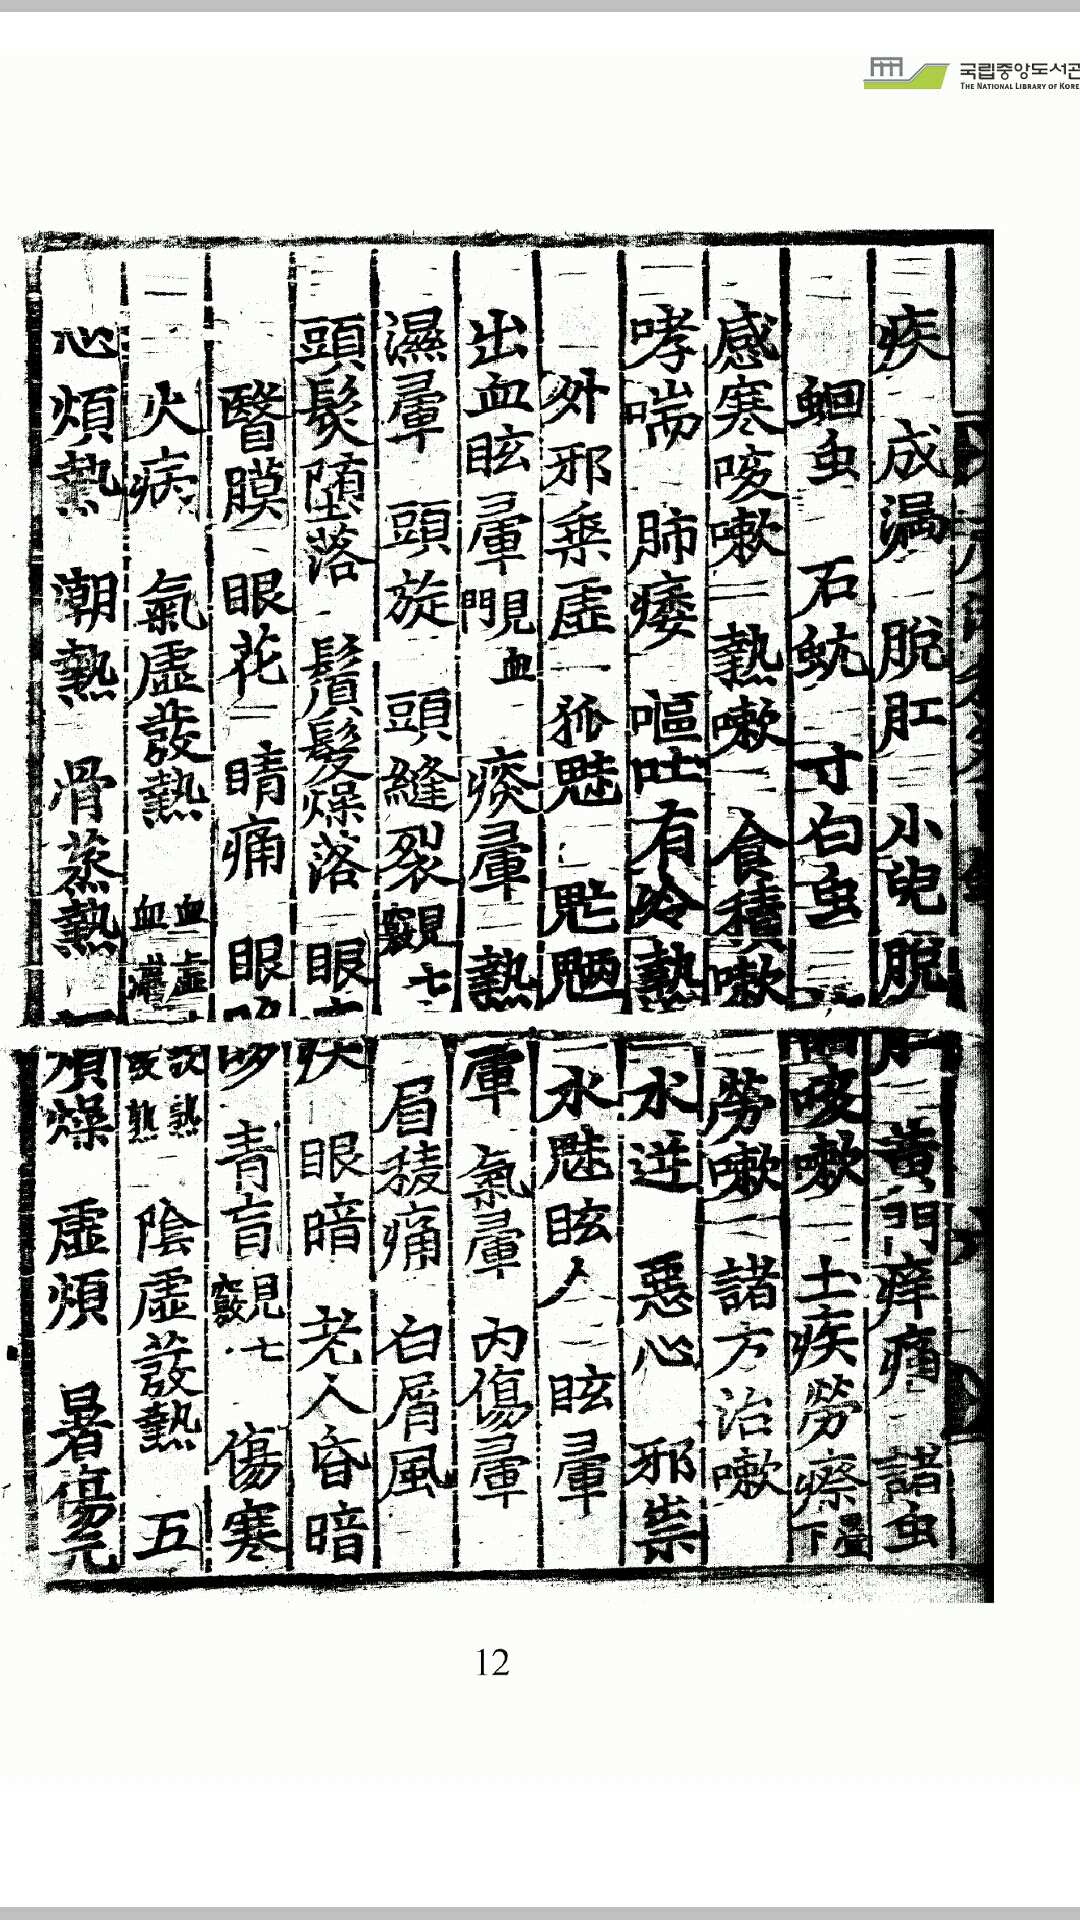 국립중앙도서관
THE NATIONAL LIBRARY OF KORE
疾 成漏 脫肛 小兒脫肛 黃門痒痛 諸虫
蛔虫 石蚘 寸白虫 咳嗽 土疾 勞瘵
感寒咳嗽 熱嗽 食積嗽 勞嗽 諸方治嗽
哮喘 肺痿 嘔吐有冷熱 水逆 惡心 邪祟
外邪乘虛 狐魅 魍魎 水魅眩人 眩暈
出血眩暈 見血門 痰暈 熱暈 氣暈 內傷暈
濕暈 頭旋 頭縫裂 見七竅 眉稜痛 白屑風
頭髮墮落 鬚髮燥落 眼 眼暗 老人昏暗
瞖膜 眼花 睛痛 眼眵 青盲 見七竅 傷寒
火病 氣虛發熱 血虛 陰虛發熱 五
心煩熱 潮熱 骨蒸熱 煩燥 虛煩 暑傷元
12